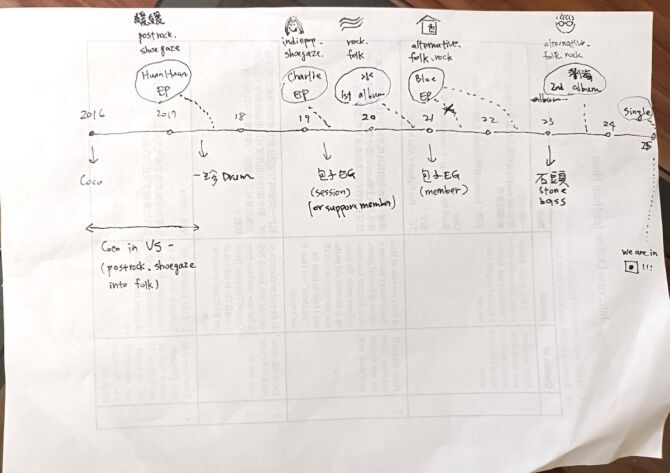 緩緩
postrock.
shoegaze
indiepop.
shoegaze.
rock.
folk
alternative.
folk.rock
alternative.
folk.rock
HuanHuan
EP
Charlie
EP
水
1st album
Blue
EP
album
2nd album
Single
2016
2017
18
19
20
21
22
23
24
25
Coco
Drum
包子EG
(session)
(or support member)
包子EG
(member)
石頭
Stone
bass
Coco in US -
(postrock.shoegaze
into folk)
we are in
!!!